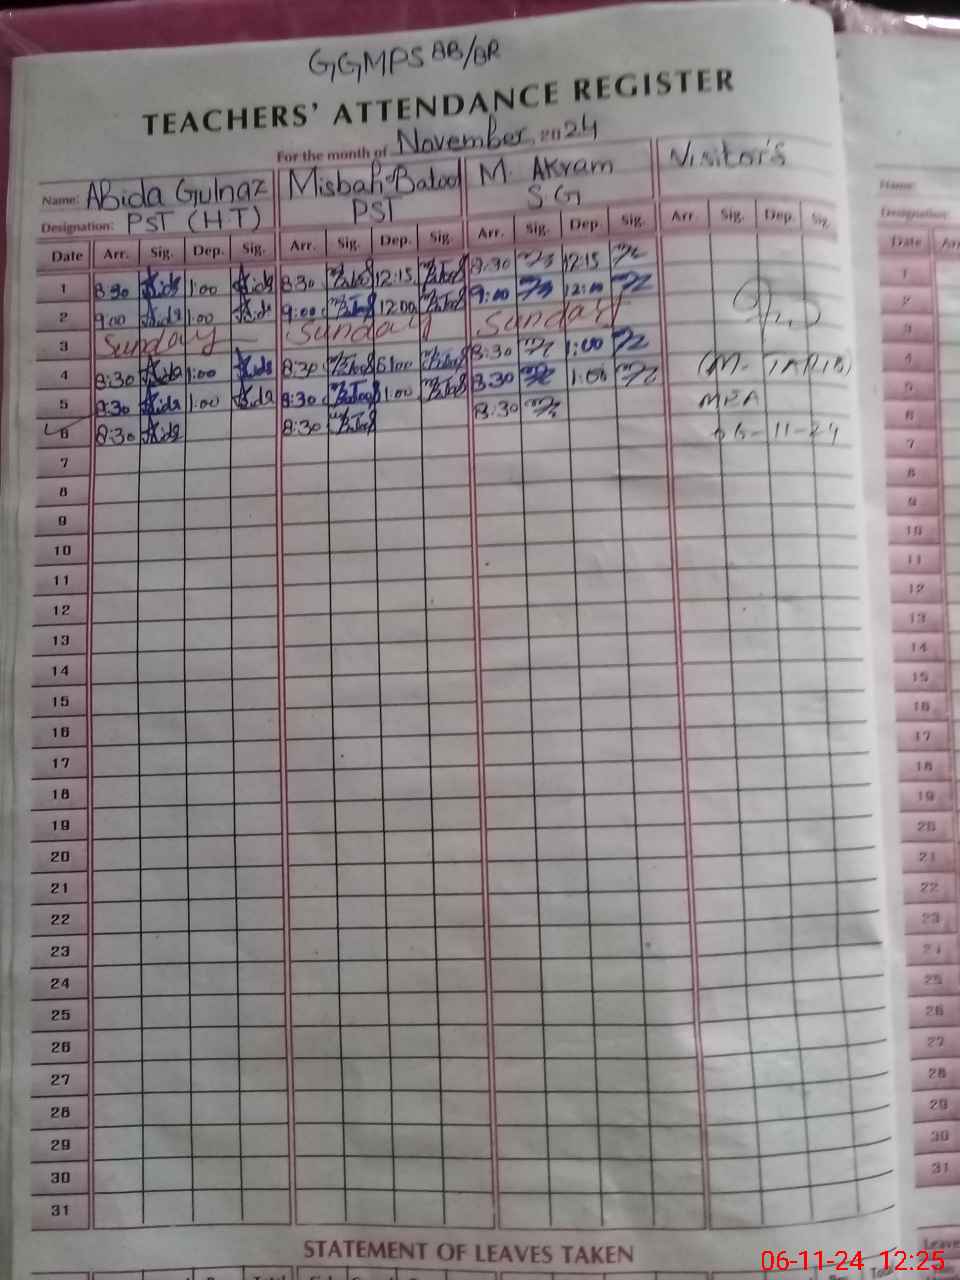 GGMPS BB/BR
TEACHERS' ATTENDANCE REGISTER
For the month of November, 2024
Name: ABida Gulnaz Misbah Batool M. Akram Visitor's
Designation: PST (H.T) PST SG
Date Arr. Sig. Dep. Sig. Arr. Sig. Dep. Sig. Arr. Sig. Dep. Sig. Arr. Sig. Dep. Sig.
1 8:30 1:00 8:30 12:15 8:30 12:15
2 9:00 1:00 9:00 12:00 9:00 12:00
3 Sunday Sunday Sunday
4 8:30 1:00 8:30 1:00 8:30 1:00 (M. TARIQ)
5 8:30 1:00 8:30 1:00 8:30 1:00 MEA
6 8:30 8:30 8:30 06-11-24
7
8
9
10
11
12
13
14
15
16
17
18
19
20
21
22
23
24
25
26
27
28
29
30
31
STATEMENT OF LEAVES TAKEN
Name:
Designation:
Date Arr
1
2
3
4
5
6
7
8
9
10
11
12
13
14
15
16
17
18
19
20
21
22
23
24
25
26
27
28
29
30
31
Leave
06-11-24 12:25